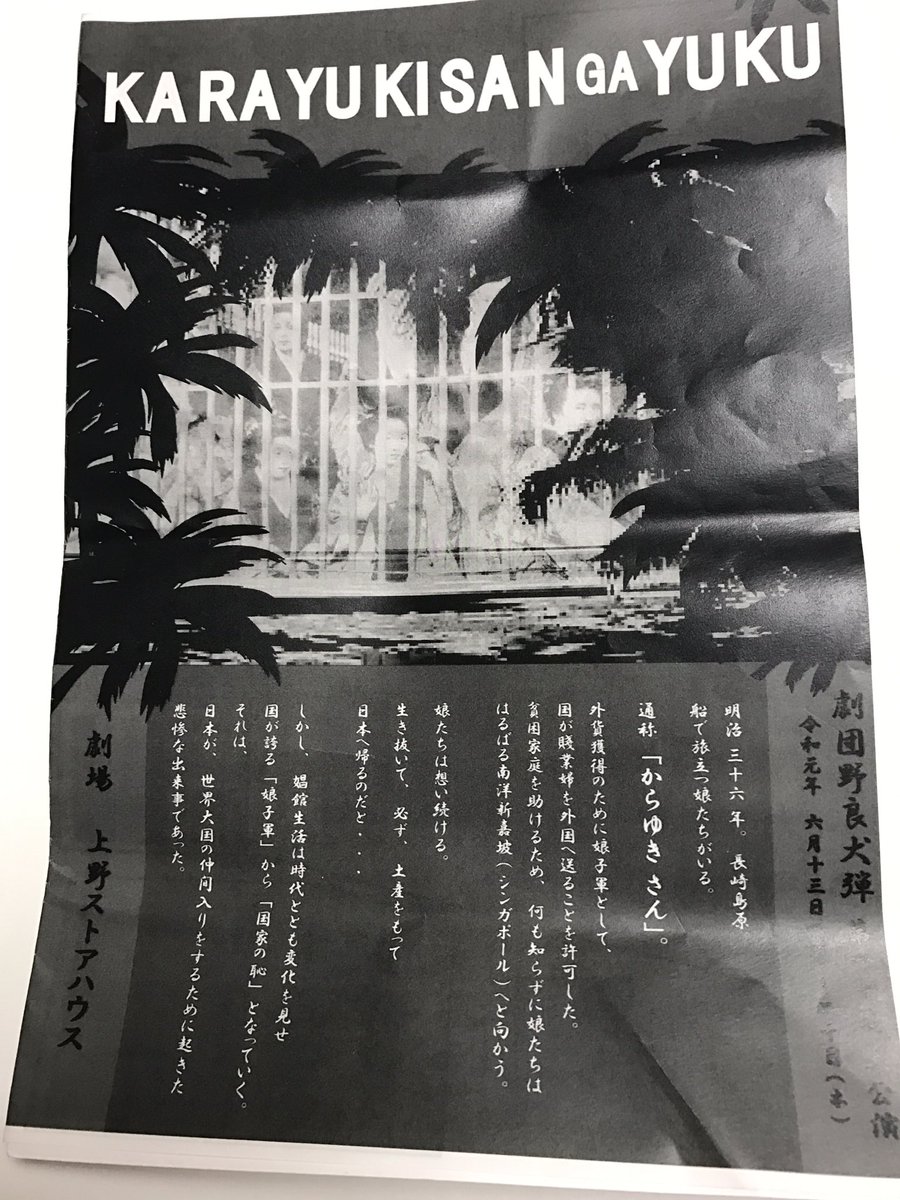 KARAYUKISAN GA YUKU
劇団野良犬弾 公演
令和元年 六月十三日 日(木)
明治 三十六年。 長崎島原
船で旅立つ娘たちがいる。
通称 「からゆき さん」。
外貨獲得のために娘子軍として、
国が賤業婦を外国へ送ることを許可した。
貧困家庭を助けるため、 何も知らずに娘たちは
はるばる南洋新嘉坡(シンガポール)へと向かう。
娘たちは想い続ける。
生き抜いて、 必ず、 土産をもって
日本へ帰るのだと・・・
しかし、 娼館生活は時代ととも変化を見せ
国が誇る「娘子軍」から「国家の恥」となっていく。
それは、
日本が、 世界大国の仲間入りをするために起きた
悲惨な出来事であった。
劇場 上野ストアハウス